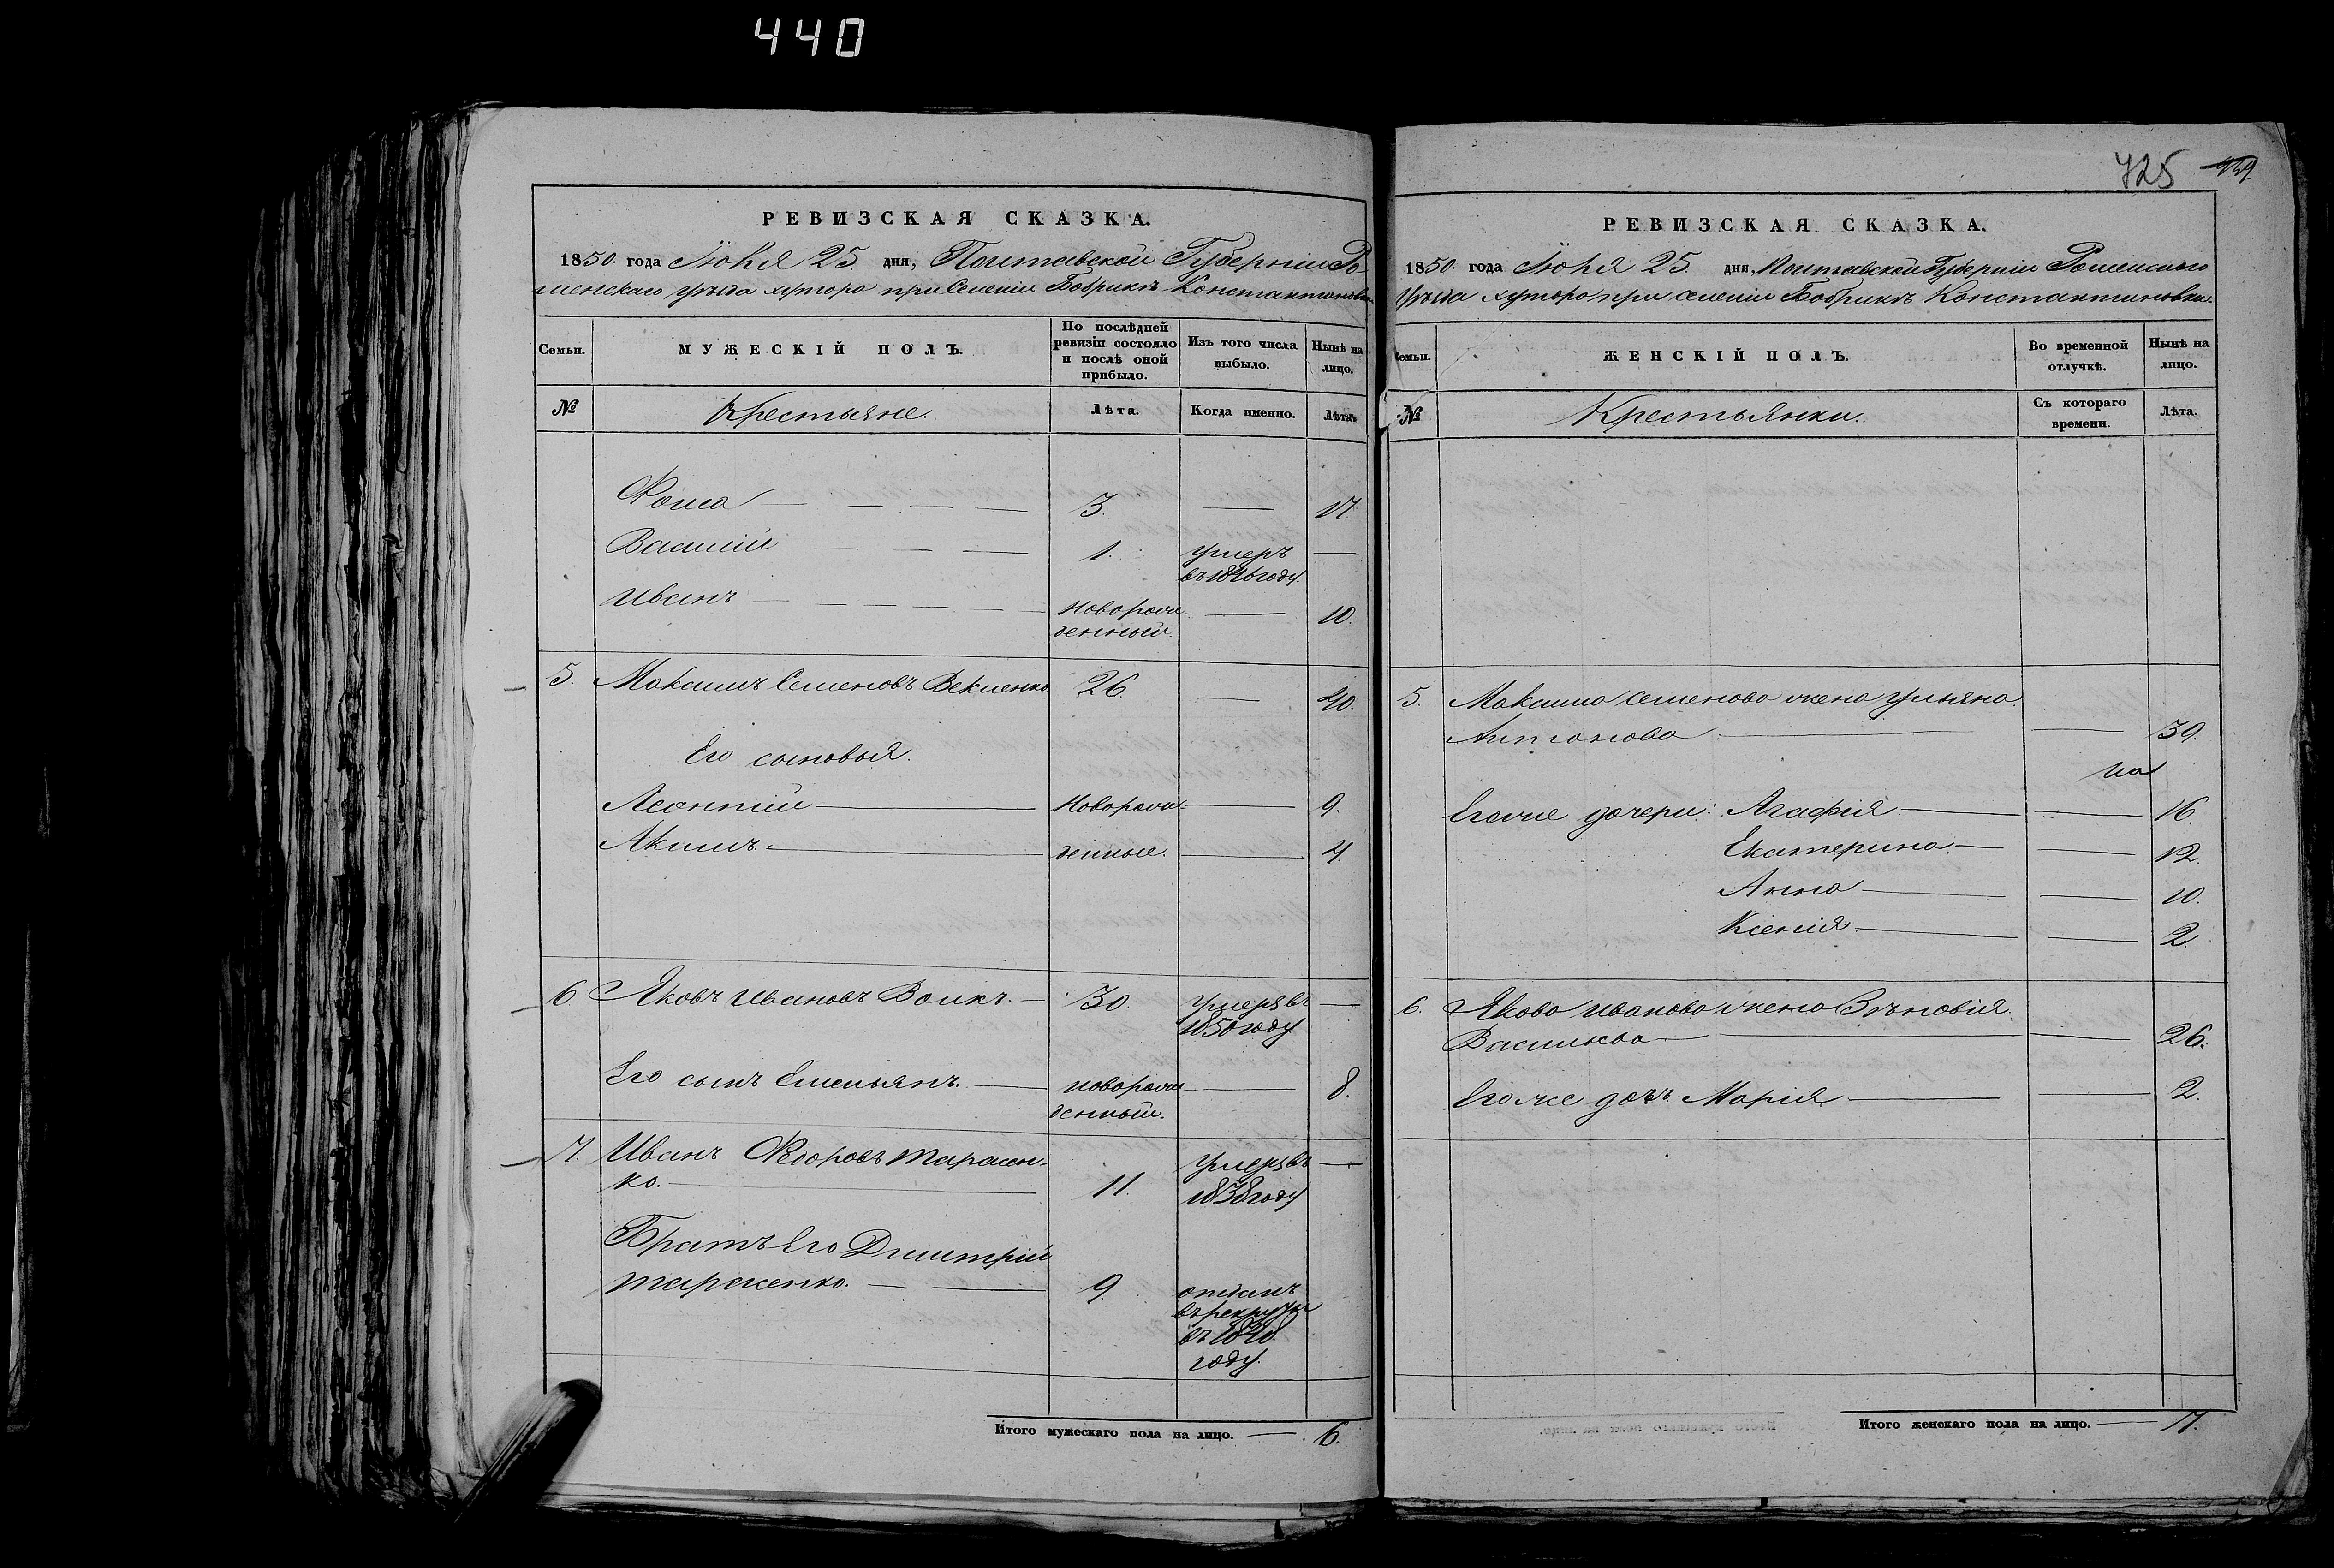 440
РЕВИЗСКАЯ СКАЗКА.
1850. года Іюня 25. дня, Полтавской Губерніи Ро-
менскаго уѣзда хутора при селеніи Бобрикѣ Константиновки
Семьи.
МУЖЕСКІЙ ПОЛЪ.
По послѣдней ревизіи состояло и послѣ оной прибыло.
Изъ того числа выбыло.
Нынѣ на лицо.
№
Крестьяне.
Лѣта.
Когда именно.
Лѣта.
Фома 3. 17.
Василій 1. умеръ
въ 1846 году.
Иванъ новорож- 10.
денный.
5. Максимъ Семеновъ Векленко 26. 40.
Его сыновья.
Леонтій новорож- 9.
Акимъ. денные. 4.
6. Яковъ Ивановъ Волкъ. 30. умеръ въ
1850 году
Его сынъ Емельянъ. новорож- 8.
денный.
7. Иванъ Федоровъ Тарасен- умеръ въ
ко. 11. 1838 году
Братъ его Дмитрій
Тарасенко. 9. отданъ
въ рекруты
въ 1848
году.
Итого мужескаго пола на лицо. 6.
725
РЕВИЗСКАЯ СКАЗКА.
1850. года Іюня 25. дня, Полтавской Губерніи Роменскаго
уѣзда хутора при селеніи Бобрикѣ Константиновки.
Семьи.
ЖЕНСКІЙ ПОЛЪ.
Во временной отлучкѣ.
Нынѣ на лицо.
№
Крестьянки.
Съ котораго времени.
Лѣта.
5. Максима Семенова жена Ульяна
Антонова 39.
Его же дочери: Агафія 16.
Екатерина 12.
Анна 10.
Ксенія 2.
6. Якова Иванова жена Зѣновія
Васильева 26.
Его же дочь Марія 2.
Итого женскаго пола на лицо. 7.